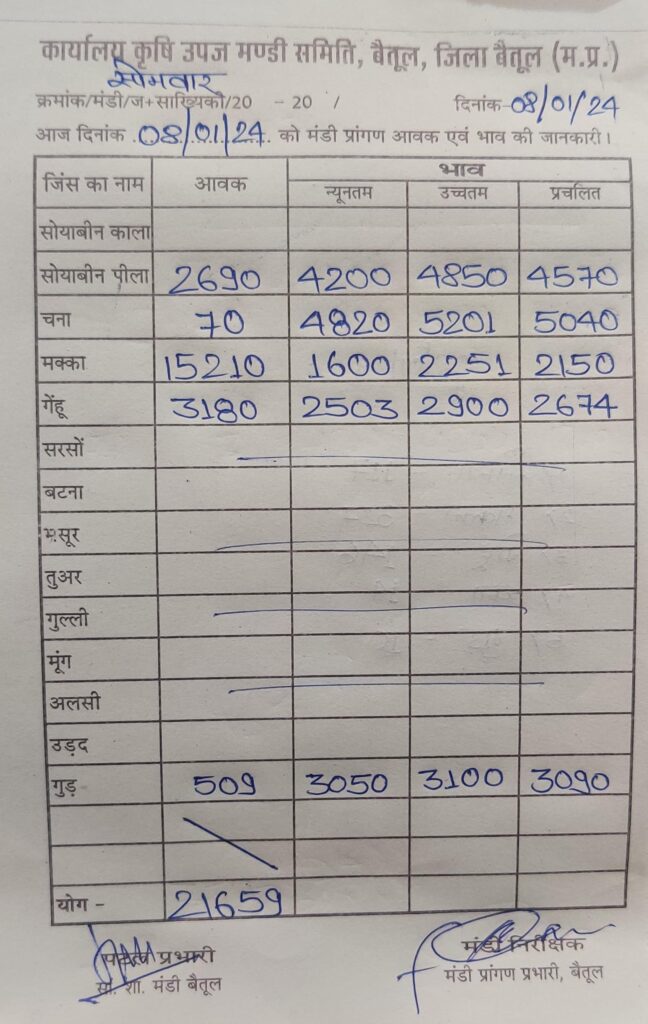 कार्यालय कृषि उपज मण्डी समिति, बैतूल, जिला बैतूल (म.प्र.)
सोमवार
क्रमांक/मंडी/ज+सांख्यिकी/20 - 20 / दिनांक-08/01/24
आज दिनांक 08/01/24 को मंडी प्रांगण आवक एवं भाव की जानकारी।
जिंस का नाम आवक भाव
न्यूनतम उच्चतम प्रचलित
सोयाबीन काला
सोयाबीन पीला 2690 4200 4850 4570
चना 70 4820 5201 5040
मक्का 15210 1600 2251 2150
गेंहू 3180 2503 2900 2674
सरसों
बटना
मसूर
तुअर
गुल्ली
मूंग
अलसी
उड़द
गुड़ 509 3050 3100 3090
योग - 21659
प्रभारी मंडी निरीक्षक
सां. शा. मंडी बैतूल मंडी प्रांगण प्रभारी, बैतूल